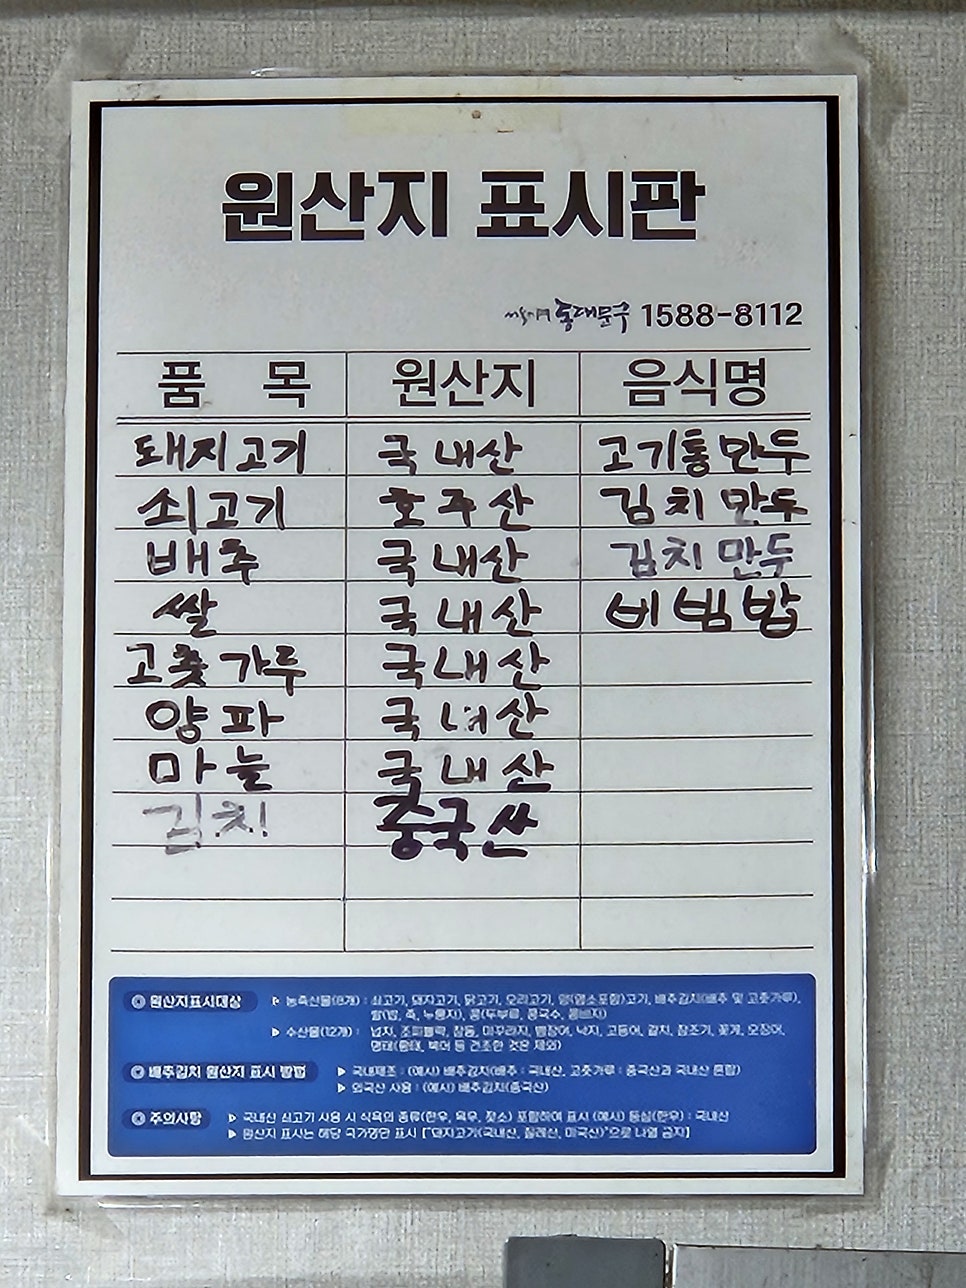 원산지 표시판
동대문구 1588-8112
품 목 원산지 음식명
돼지고기 국내산 고기통만두
쇠고기 호주산 김치만두
배추 국내산 김치만두
쌀 국내산 비빔밥
고춧가루 국내산
양파 국내산
마늘 국내산
김치 중국산
원산지표시대상 ▷ 농축산물(8개) : 쇠고기, 돼지고기, 닭고기, 오리고기, 양(염소포함)고기, 배추김치(배추 및 고춧가루),
쌀(밥, 죽, 누룽지), 콩(두부류, 콩국수, 콩비지)
▷ 수산물(12개) : 넙치, 조피볼락, 참돔, 미꾸라지, 뱀장어, 낙지, 고등어, 갈치, 참조기, 꽃게, 오징어,
명태(황태, 북어 등 건조한 것은 제외)
배추김치 원산지 표시 방법 ▷ 국내제조 : (예시) 배추김치(배추 : 국내산, 고춧가루 : 중국산과 국내산 혼합)
▷ 외국산 사용 : (예시) 배추김치(중국산)
주의사항 ▷ 국내산 쇠고기 사용 시 식육의 종류(한우, 육우, 젖소) 포함하여 표시 (예시) 등심(한우) : 국내산
▷ 원산지 표시는 해당 국가명만 표시 ["돼지고기(국내산, 칠레산, 미국산)"으로 나열 금지]